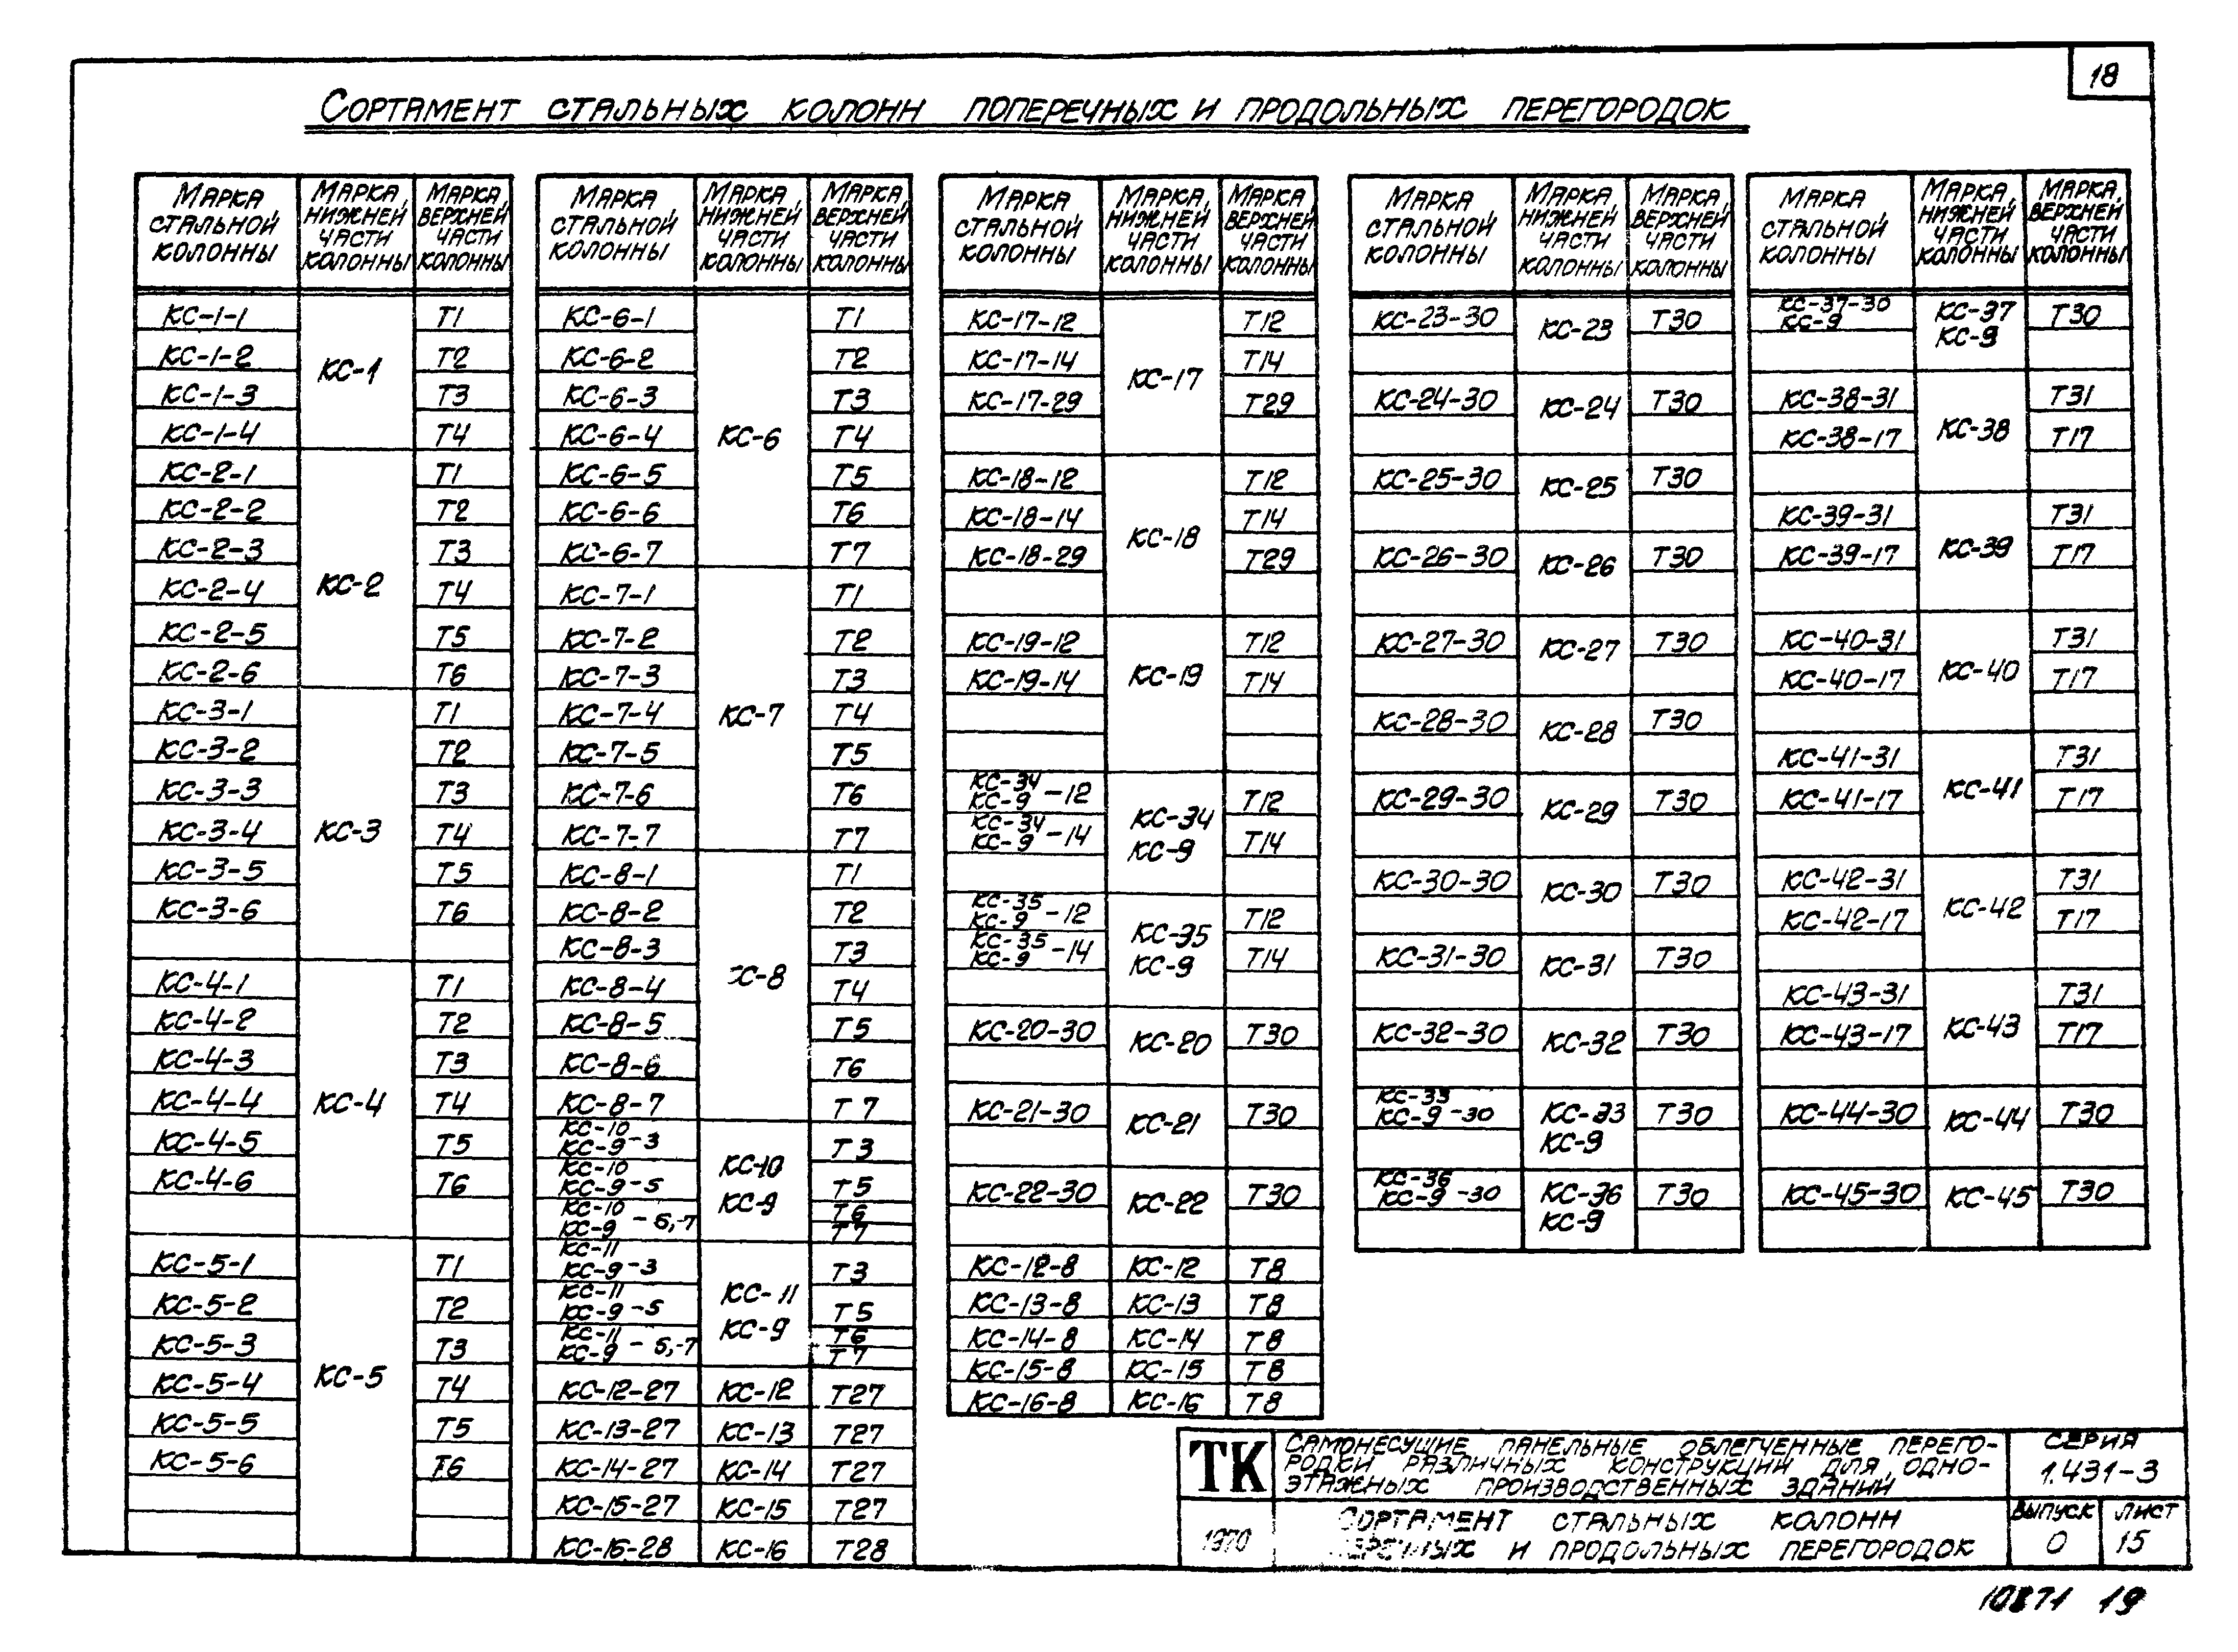 18
СОРТАМЕНТ СТАЛЬНЫХ КОЛОНН ПОПЕРЕЧНЫХ И ПРОДОЛЬНЫХ ПЕРЕГОРОДОК
МАРКА СТАЛЬНОЙ КОЛОННЫ | МАРКА НИЖНЕЙ ЧАСТИ КОЛОННЫ | МАРКА ВЕРХНЕЙ ЧАСТИ КОЛОННЫ
КС-1-1 | КС-1 | Т1
КС-1-2 | Т2
КС-1-3 | Т3
КС-1-4 | Т4
КС-2-1 | КС-2 | Т1
КС-2-2 | Т2
КС-2-3 | Т3
КС-2-4 | Т4
КС-2-5 | Т5
КС-2-6 | Т6
КС-3-1 | КС-3 | Т1
КС-3-2 | Т2
КС-3-3 | Т3
КС-3-4 | Т4
КС-3-5 | Т5
КС-3-6 | Т6
КС-4-1 | КС-4 | Т1
КС-4-2 | Т2
КС-4-3 | Т3
КС-4-4 | Т4
КС-4-5 | Т5
КС-4-6 | Т6
КС-5-1 | КС-5 | Т1
КС-5-2 | Т2
КС-5-3 | Т3
КС-5-4 | Т4
КС-5-5 | Т5
КС-5-6 | Т6
МАРКА СТАЛЬНОЙ КОЛОННЫ | МАРКА НИЖНЕЙ ЧАСТИ КОЛОННЫ | МАРКА ВЕРХНЕЙ ЧАСТИ КОЛОННЫ
КС-6-1 | КС-6 | Т1
КС-6-2 | Т2
КС-6-3 | Т3
КС-6-4 | Т4
КС-6-5 | Т5
КС-6-6 | Т6
КС-6-7 | Т7
КС-7-1 | КС-7 | Т1
КС-7-2 | Т2
КС-7-3 | Т3
КС-7-4 | Т4
КС-7-5 | Т5
КС-7-6 | Т6
КС-7-7 | Т7
КС-8-1 | КС-8 | Т1
КС-8-2 | Т2
КС-8-3 | Т3
КС-8-4 | Т4
КС-8-5 | Т5
КС-8-6 | Т6
КС-8-7 | Т7
КС-10 КС-9 -3 | КС-10 КС-9 | Т3
КС-10 КС-9 -5 | Т5
КС-10 КС-9 -6,-7 | Т6 Т7
КС-11 КС-9 -3 | КС-11 КС-9 | Т3
КС-11 КС-9 -5 | Т5
КС-11 КС-9 -6,-7 | Т6 Т7
КС-12-27 | КС-12 | Т27
КС-13-27 | КС-13 | Т27
КС-14-27 | КС-14 | Т27
КС-15-27 | КС-15 | Т27
КС-16-28 | КС-16 | Т28
МАРКА СТАЛЬНОЙ КОЛОННЫ | МАРКА НИЖНЕЙ ЧАСТИ КОЛОННЫ | МАРКА ВЕРХНЕЙ ЧАСТИ КОЛОННЫ
КС-17-12 | КС-17 | Т12
КС-17-14 | Т14
КС-17-29 | Т29
КС-18-12 | КС-18 | Т12
КС-18-14 | Т14
КС-18-29 | Т29
КС-19-12 | КС-19 | Т12
КС-19-14 | Т14
КС-34 КС-9 -12 | КС-34 КС-9 | Т12
КС-34 КС-9 -14 | Т14
КС-35 КС-9 -12 | КС-35 КС-9 | Т12
КС-35 КС-9 -14 | Т14
КС-20-30 | КС-20 | Т30
КС-21-30 | КС-21 | Т30
КС-22-30 | КС-22 | Т30
КС-12-8 | КС-12 | Т8
КС-13-8 | КС-13 | Т8
КС-14-8 | КС-14 | Т8
КС-15-8 | КС-15 | Т8
КС-16-8 | КС-16 | Т8
МАРКА СТАЛЬНОЙ КОЛОННЫ | МАРКА НИЖНЕЙ ЧАСТИ КОЛОННЫ | МАРКА ВЕРХНЕЙ ЧАСТИ КОЛОННЫ
КС-23-30 | КС-23 | Т30
КС-24-30 | КС-24 | Т30
КС-25-30 | КС-25 | Т30
КС-26-30 | КС-26 | Т30
КС-27-30 | КС-27 | Т30
КС-28-30 | КС-28 | Т30
КС-29-30 | КС-29 | Т30
КС-30-30 | КС-30 | Т30
КС-31-30 | КС-31 | Т30
КС-32-30 | КС-32 | Т30
КС-33 КС-9 -30 | КС-33 КС-9 | Т30
КС-36 КС-9 -30 | КС-36 КС-9 | Т30
МАРКА СТАЛЬНОЙ КОЛОННЫ | МАРКА НИЖНЕЙ ЧАСТИ КОЛОННЫ | МАРКА ВЕРХНЕЙ ЧАСТИ КОЛОННЫ
КС-37-30 КС-9 | КС-37 КС-9 | Т30
КС-38-31 | КС-38 | Т31
КС-38-17 | Т17
КС-39-31 | КС-39 | Т31
КС-39-17 | Т17
КС-40-31 | КС-40 | Т31
КС-40-17 | Т17
КС-41-31 | КС-41 | Т31
КС-41-17 | Т17
КС-42-31 | КС-42 | Т31
КС-42-17 | Т17
КС-43-31 | КС-43 | Т31
КС-43-17 | Т17
КС-44-30 | КС-44 | Т30
КС-45-30 | КС-45 | Т30
ТК
САМОНЕСУЩИЕ ПАНЕЛЬНЫЕ ОБЛЕГЧЕННЫЕ ПЕРЕГО-
РОДКИ РАЗЛИЧНЫХ КОНСТРУКЦИЙ ДЛЯ ОДНО-
ЭТАЖНЫХ ПРОИЗВОДСТВЕННЫХ ЗДАНИЙ
СЕРИЯ
1.431-3
1970
СОРТАМЕНТ СТАЛЬНЫХ КОЛОНН
И ПРОДОЛЬНЫХ ПЕРЕГОРОДОК
ВЫПУСК
0
ЛИСТ
15
10871 19